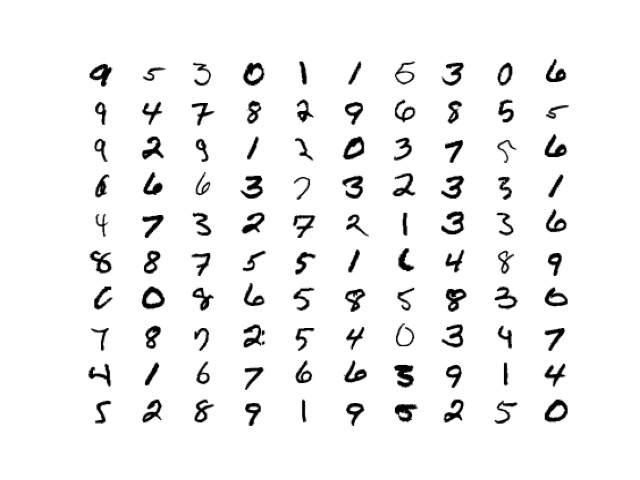 9 5 3 0 1 1 5 3 0 6
9 4 7 8 2 9 6 8 5 5
9 2 9 1 2 0 3 7 5 6
6 6 6 3 7 3 2 3 3 1
4 7 3 2 7 2 1 3 3 6
8 8 7 5 5 1 6 4 8 9
6 0 8 6 5 8 5 8 3 6
7 8 7 2 5 4 0 3 4 7
4 1 6 7 6 6 3 9 1 4
5 2 8 9 1 9 5 2 5 0